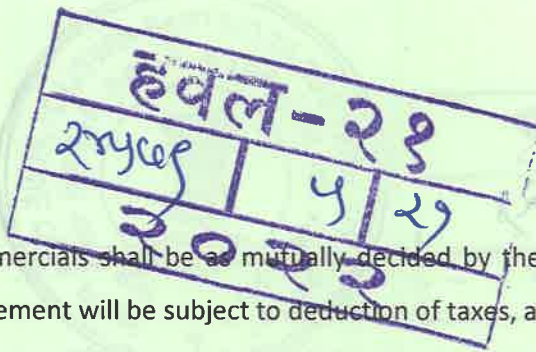 हवल - २१
५ २१
२०२२
mercials shall be as mutually decided by the
ement will be subject to deduction of taxes, a